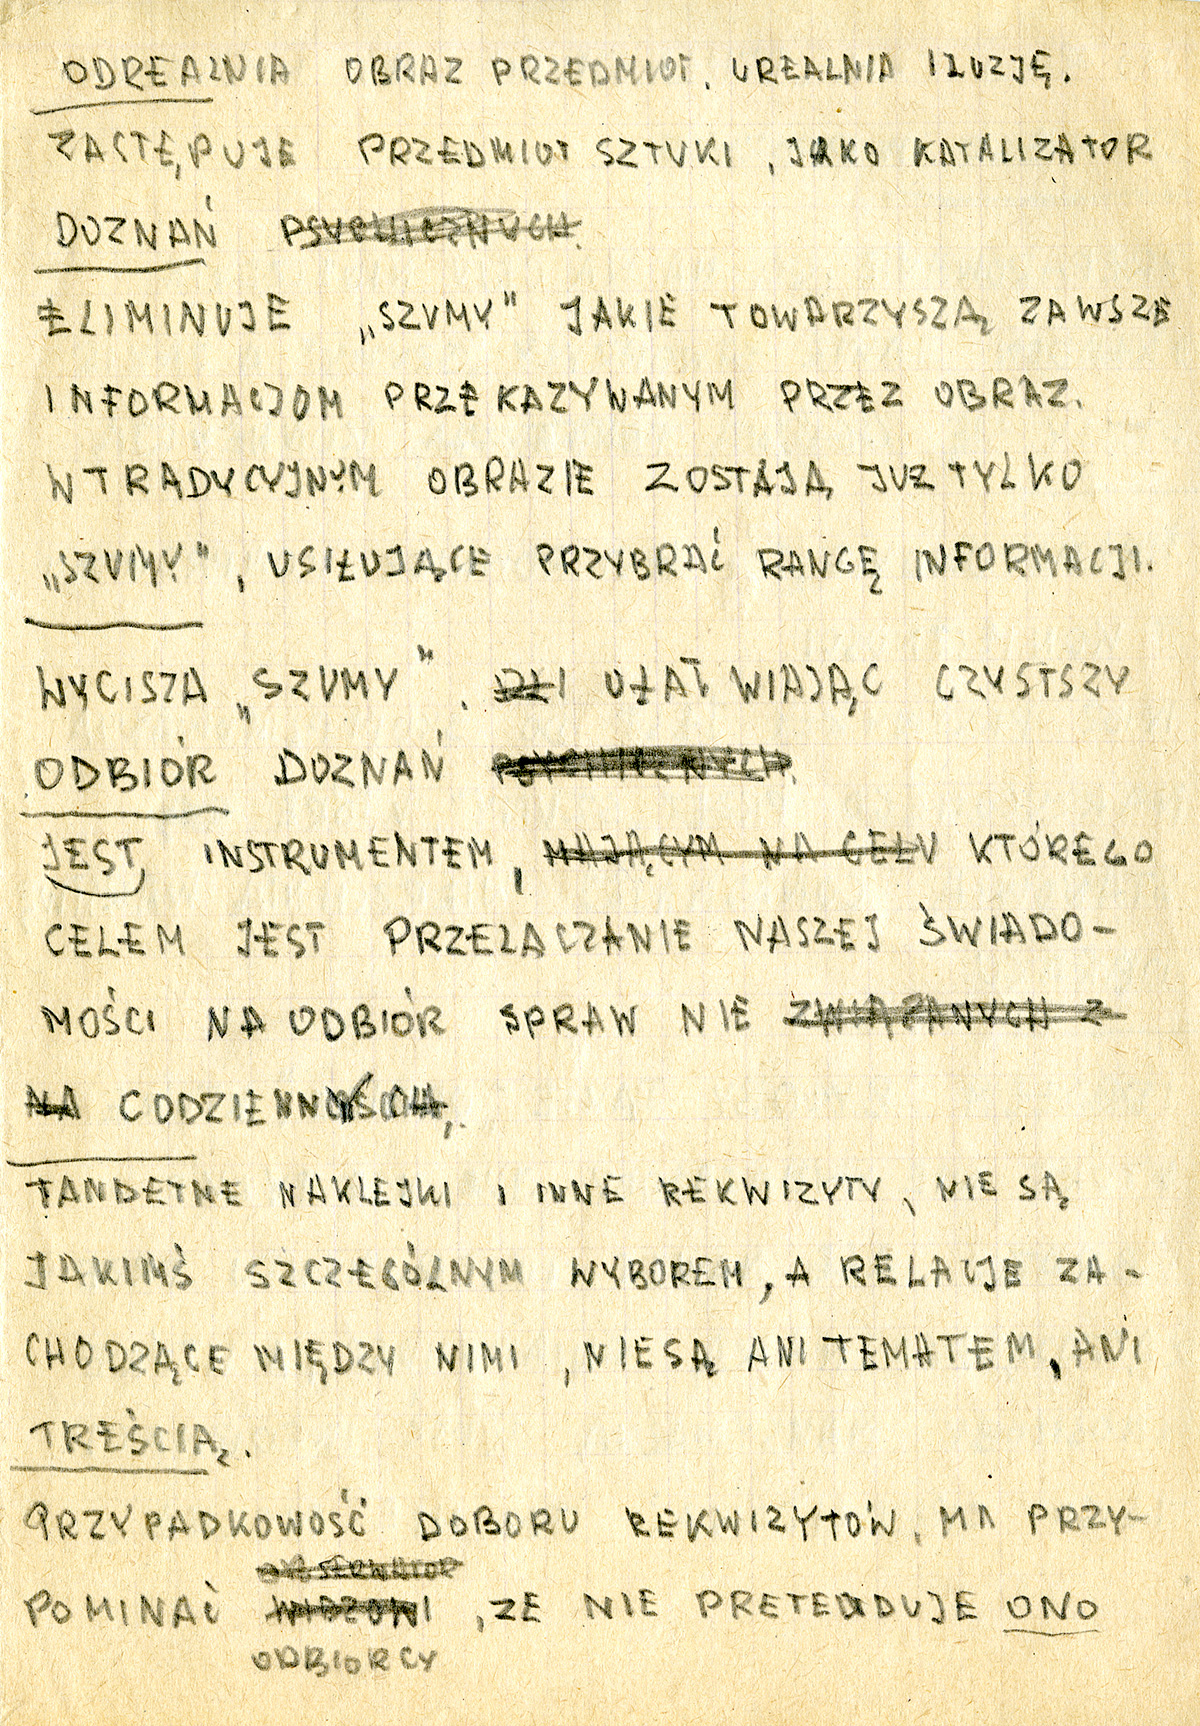 ODREALNIA OBRAZ PRZEDMIOT, UREALNIA ILUZJĘ.
ZASTĘPUJE PRZEDMIOT SZTUKI, JAKO KATALIZATOR
DOZNAŃ PSYCHICZNYCH.
ELIMINUJE „SZUMY" JAKIE TOWARZYSZĄ ZAWSZE
INFORMACJOM PRZEKAZYWANYM PRZEZ OBRAZ.
W TRADYCYJNYM OBRAZIE ZOSTAJĄ JUŻ TYLKO
„SZUMY", USIŁUJĄCE PRZYBRAĆ RANGĘ INFORMACJI.
WYCISZA „SZUMY". UŁATWIAJĄC CZYSTSZY
ODBIÓR DOZNAŃ PSYCHICZNYCH.
JEST INSTRUMENTEM, MAJĄCYM NA CELU KTÓREGO
CELEM JEST PRZEŁĄCZANIE NASZEJ ŚWIADO-
MOŚCI NA ODBIÓR SPRAW NIE ZWIĄZANYCH Z
NA CODZIENNYCH.
TANDETNE NAKLEJKI I INNE REKWIZYTY, NIE SĄ
JAKIMŚ SZCZEGÓLNYM WYBOREM, A RELACJE ZA-
CHODZĄCE MIĘDZY NIMI, NIE SĄ ANI TEMATEM, ANI
TREŚCIĄ.
PRZYPADKOWOŚĆ DOBORU REKWIZYTÓW, MA PRZY-
POMINAĆ WIDZOWI, ZE NIE PRETENDUJE ONO
ODBIORCY